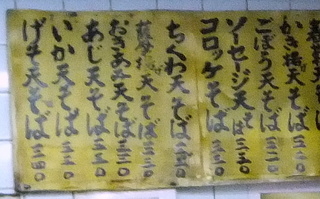 かき揚天そば
ごぼう天そば三二〇
ソーセージ天そば三三〇
コロッケそば三三〇
ちくわ天そば三三〇
天そば三三〇
おきあみ天そば三三〇
あじ天そば三三〇
いか天そば三三〇
げそ天そば三四〇